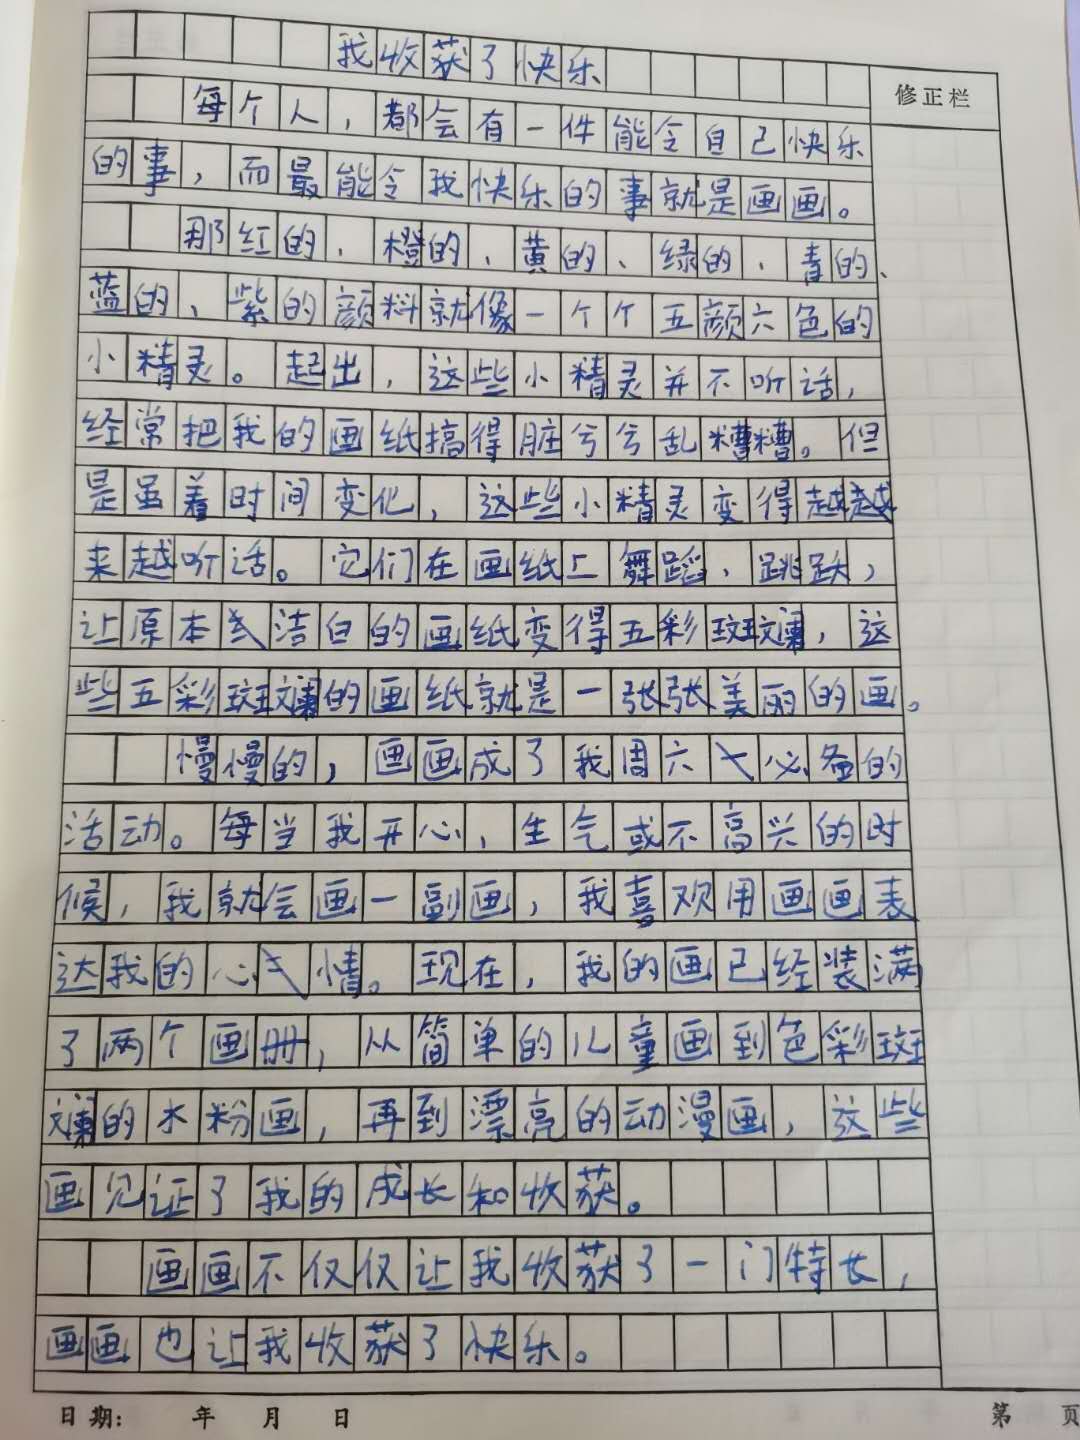 我收获了快乐
修正栏
每个人，都会有一件能令自己快乐
的事，而最能令我快乐的事就是画画。
那红的、橙的、黄的、绿的、青的、
蓝的、紫的颜料就像一个个五颜六色的
小精灵。起出，这些小精灵并不听话，
经常把我的画纸搞得脏兮兮乱糟糟。但
是虽着时间变化，这些小精灵变得越越
来越听话。它们在画纸上舞蹈、跳跃，
让原本洁白的画纸变得五彩斑斓，这
些五彩斑斓的画纸就是一张张美丽的画。
慢慢的，画画成了我周六必备的
活动。每当我开心，生气或不高兴的时
候，我就会画一副画，我喜欢用画画表
达我的心情。现在，我的画已经装满
了两个画册，从简单的儿童画到色彩斑
斓的水粉画，再到漂亮的动漫画，这些
画见证了我的成长和收获。
画画不仅仅让我收获了一门特长，
画画也让我收获了快乐。
日期： 年 月 日 第 页